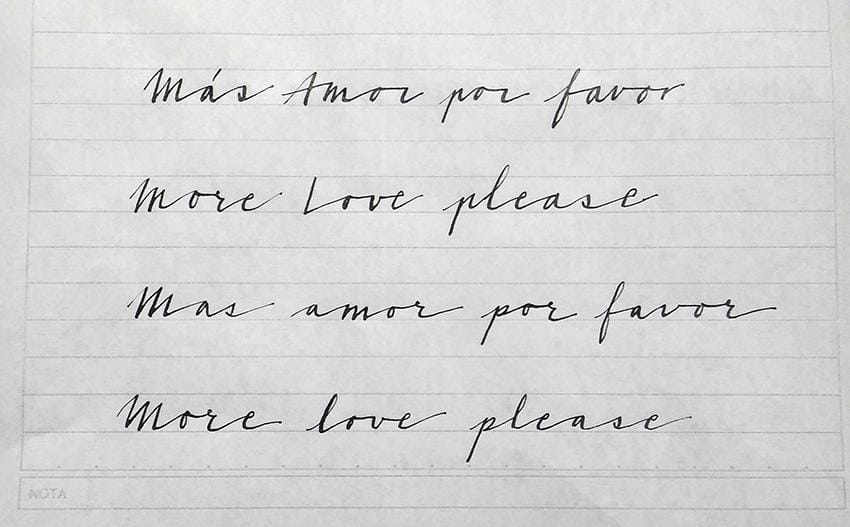 Más Amor por favor
More Love please
Mas amor por favor
More love please
NOTA